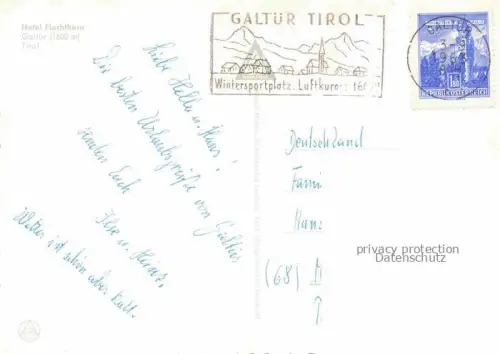 Hotel Fluchthorn
Galtür (1600 m)
Tirol
GALTÜR TIROL
Wintersportplatz. Luftkurort 1600 m
GALTÜR
REPUBLIK ÖSTERREICH
Liebe Hella u. Hans!
Die besten Urlaubsgrüße von Galtür
senden Euch
Ilse u. Heinz.
Wetter ist schön aber kalt.
Deutschland
Fami
Han
(68) M
privacy protection
Datenschutz